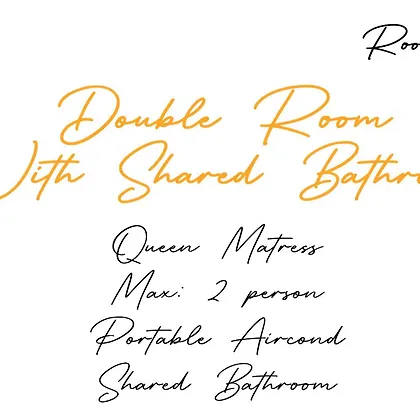 Roo
Double Room
With Shared Bathro
Queen Matress
Max: 2 person
Portable Aircond
Shared Bathroom